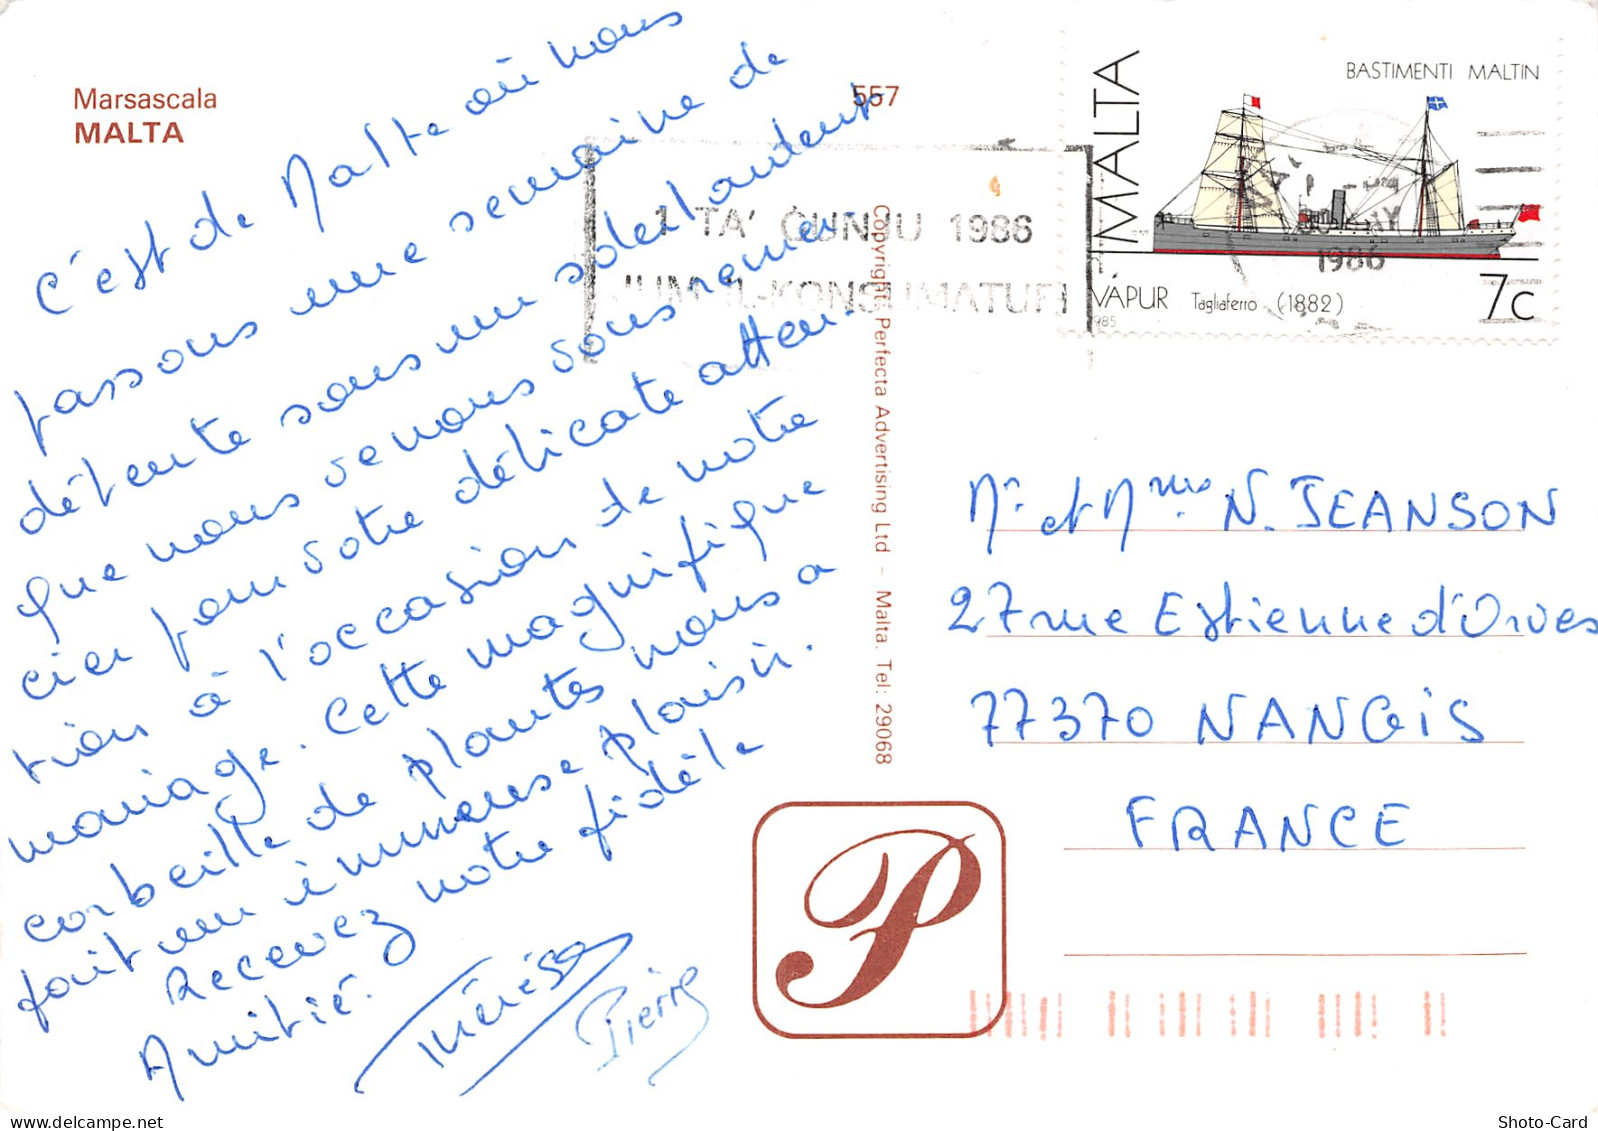 Marsascala
MALTA
557
C'est de Malte où nous
passons une semaine de
détente sous un soleil ardent
que nous venons vous remer-
cier pour votre délicate atten-
tion à l'occasion de notre
mariage. Cette magnifique
corbeille de plantes nous a
fait un immense plaisir.
Recevez notre fidèle
Amitié.
Thérèse
Pierre
Copyright: Perfecta Advertising Ltd – Malta. Tel: 29068
1 TA' ĠUNJU 1986
JUM IL-KONSUMATUR
MALTA
BASTIMENTI MALTIN
VAPUR Tagliaferro (1882)
7c
1985
1986
P
Mr et Mme N. JEANSON
27 rue Estienne d'Orves
77370 NANGIS
FRANCE
Shoto-Card